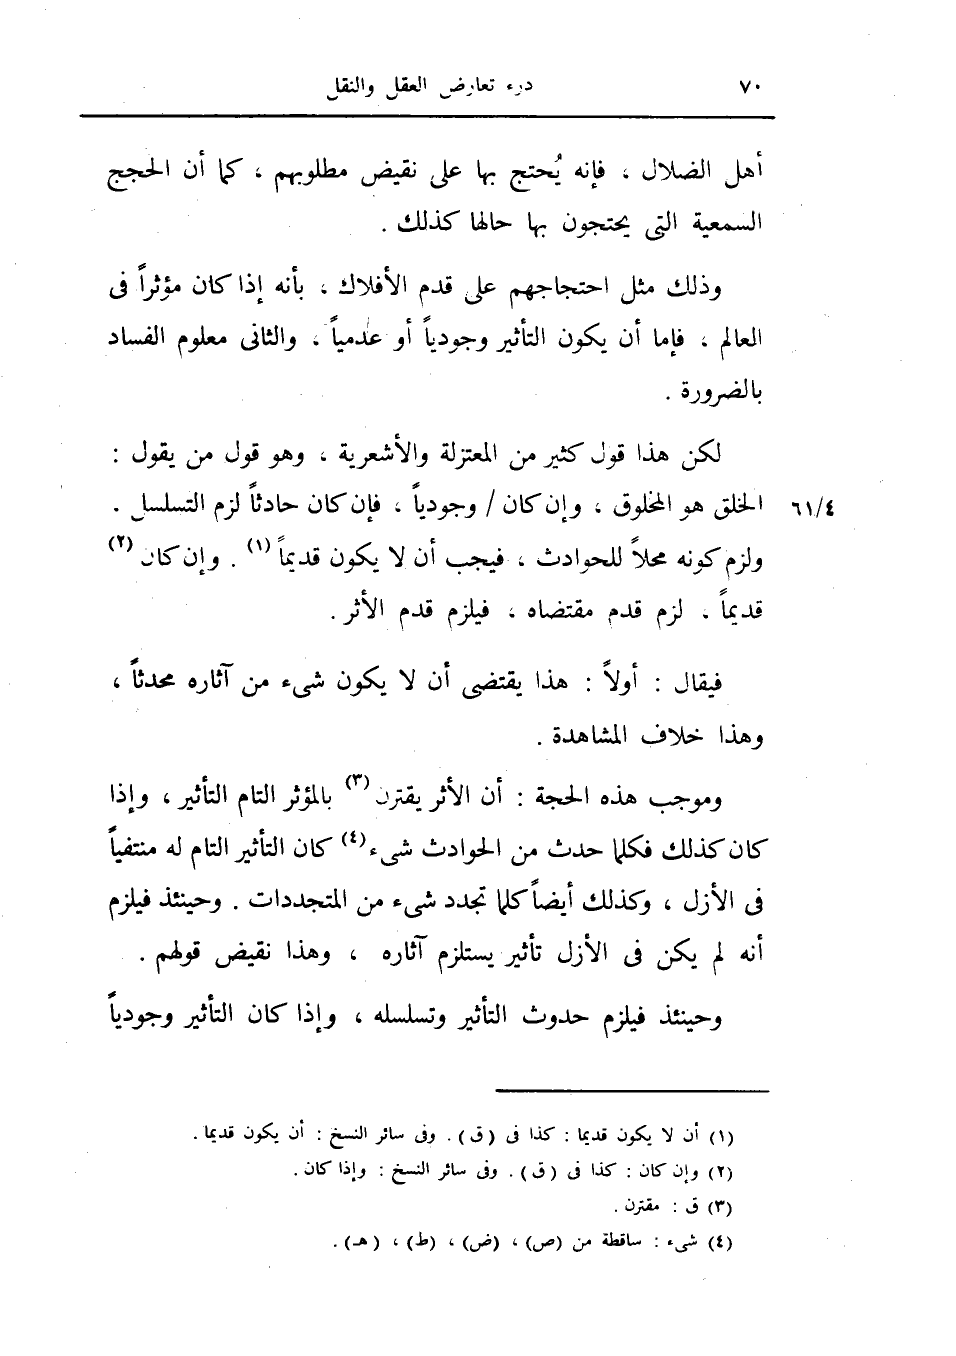 ٧٠ درء تعارض العقل والنقل
أهل الضلال ، فإنه يُحتج بها على نقيض مطلوبهم ، كما أن الحجج
السمعية التى يحتجون بها حالها كذلك .
وذلك مثل احتجاجهم على قدم الأفلاك ، بأنه إذا كان مؤثراً فى
العالم ، فإما أن يكون التأثير وجودياً أو عدمياً ، والثانى معلوم الفساد
بالضرورة .
لكن هذا قول كثير من المعتزلة والأشعرية ، وهو قول من يقول :
الخلق هو المخلوق ، وإن كان / وجودياً ، فإن كان حادثاً لزم التسلسل . ٦١/٤
ولزم كونه محلاً للحوادث ، فيجب أن لا يكون قديماً (١) . وإن كان (٢)
قديماً ، لزم قدم مقتضاه ، فيلزم قدم الأثر .
فيقال : أولاً : هذا يقتضى أن لا يكون شىء من آثاره محدثاً ،
وهذا خلاف المشاهدة .
وموجب هذه الحجة : أن الأثر يقترن (٣) بالمؤثر التام التأثير ، وإذا
كان كذلك فكلما حدث من الحوادث شىء (٤) كان التأثير التام له منتفياً
فى الأزل ، وكذلك أيضاً كلما تجدد شىء من المتجددات . وحينئذ فيلزم
أنه لم يكن فى الأزل تأثير يستلزم آثاره ، وهذا نقيض قولهم .
وحينئذ فيلزم حدوث التأثير وتسلسله ، وإذا كان التأثير وجودياً
(١) أن لا يكون قديما : كذا فى (ق) . وفى سائر النسخ : أن يكون قديما .
(٢) وإن كان : كذا فى (ق) . وفى سائر النسخ : وإذا كان .
(٣) ق : مقترن .
(٤) شىء : ساقطة من (ص) ، (ض) ، (ط) ، (هـ) .